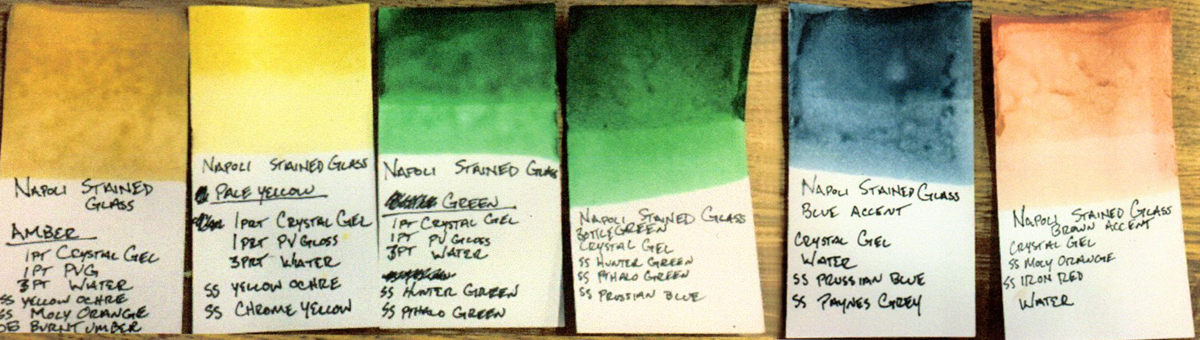 Napoli Stained
Glass
Amber
1pt Crystal Gel
1 pt PVG
3pt Water
SS Yellow Ochre
SS Moly Orange
Burnt Umber
Napoli Stained Glass
Pale Yellow
1 prt Crystal Gel
1 prt PV Gloss
3 prt Water
SS Yellow Ochre
SS Chrome Yellow
Napoli Stained Glass
Green
1 pt Crystal Gel
1 pt PV Gloss
3pt Water
SS Hunter Green
SS Pthalo Green
Napoli Stained Glass
Bottle Green
Crystal Gel
SS Hunter Green
SS Pthalo Green
SS Prussian Blue
Napoli Stained Glass
Blue Accent
Crystal Gel
Water
SS Prussian Blue
SS Paynes Grey
Napoli Stained Glass
Brown Accent
Crystal Gel
SS Moly Orange
SS Iron Red
Water